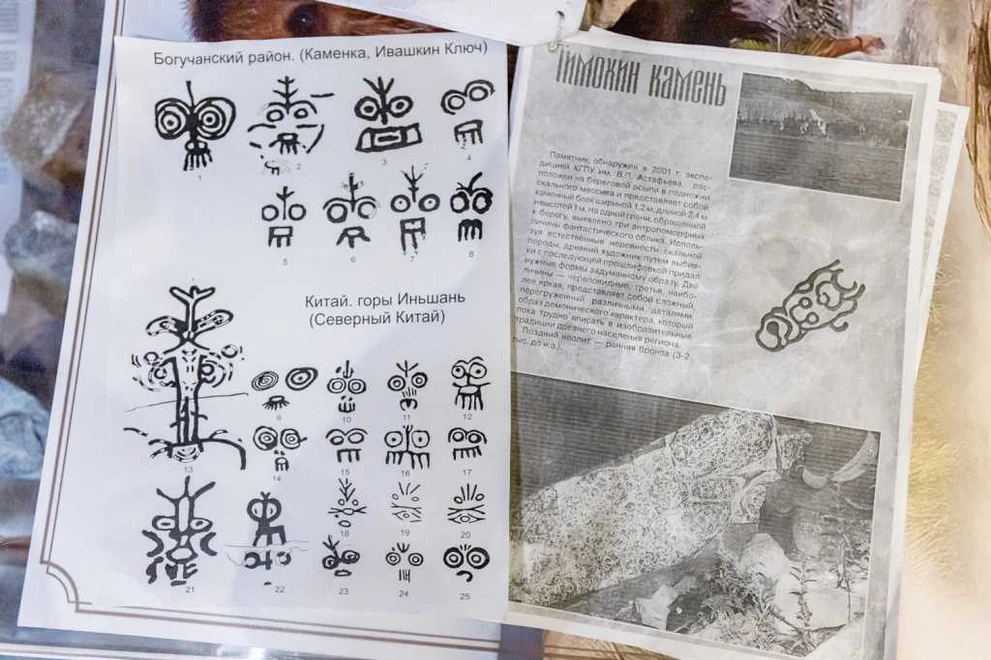 Богучанский район. (Каменка, Ивашкин Ключ)
1
2
3
4
5
6
7
8
Китай. горы Иньшань
(Северный Китай)
9
10
11
12
13
14
15
16
17
18
19
20
21
22
23
24
25
Тимохин камень
Памятник обнаружен в 2001 г. экспе-
дицией КГПУ им. В.П. Астафьева, рас-
положен на береговой осыпи в подножии
скального массива и представляет собой
каменный блок шириной 1,2 м, длиной 2,4 м
и высотой 1 м. На одной грани, обращенной
к берегу, выявлено три антропоморфных
личины фантастического облика. Исполь-
зуя естественные неровности скальной
породы, древний художник путем выбив-
ки с последующей прошлифовкой придал
нужные формы задуманному образу. Две
личины — череповидные, третья, наибо-
лее яркая, представляет собой сложный,
перегруженный различными деталями
образ демонического характера, который
пока трудно вписать в изобразительные
традиции древнего населения региона.
Поздний неолит — ранняя бронза (3-2
тыс. до н.э.).